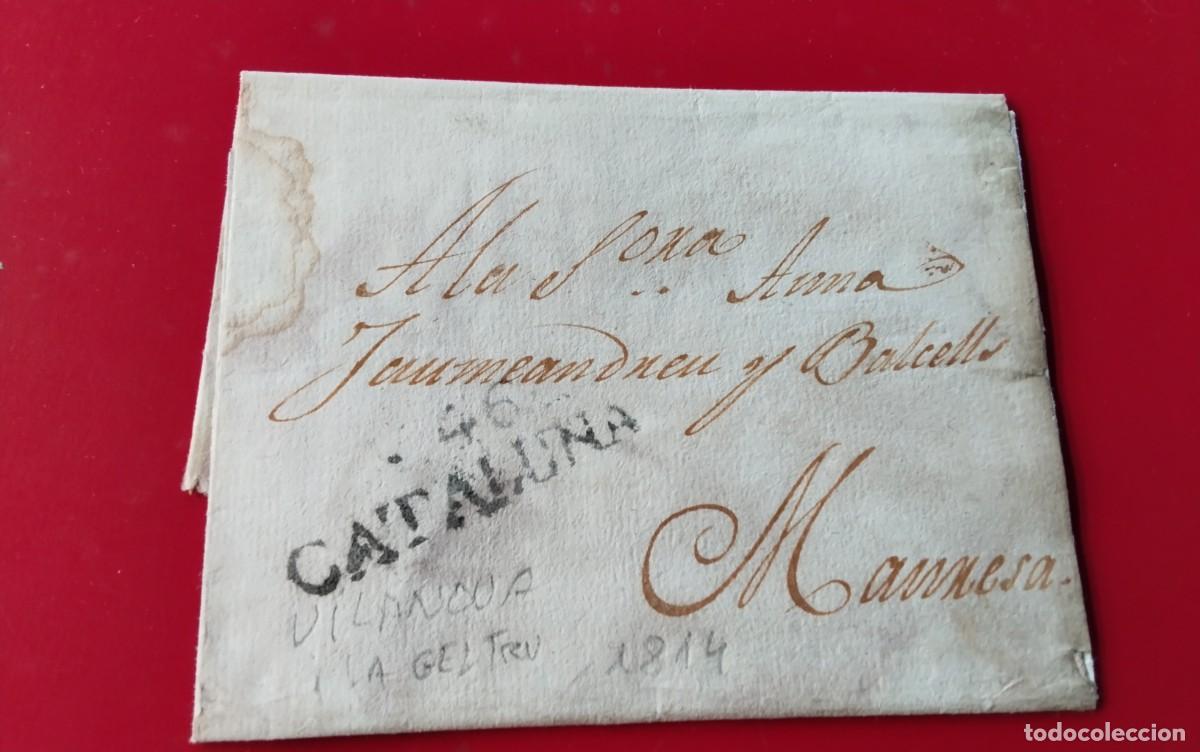 A la S.ora Anna
Jaumeandreu y Balcells
46
CATALUÑA
Manresa.
VILANOVA
I LA GELTRU 1814
todocoleccion